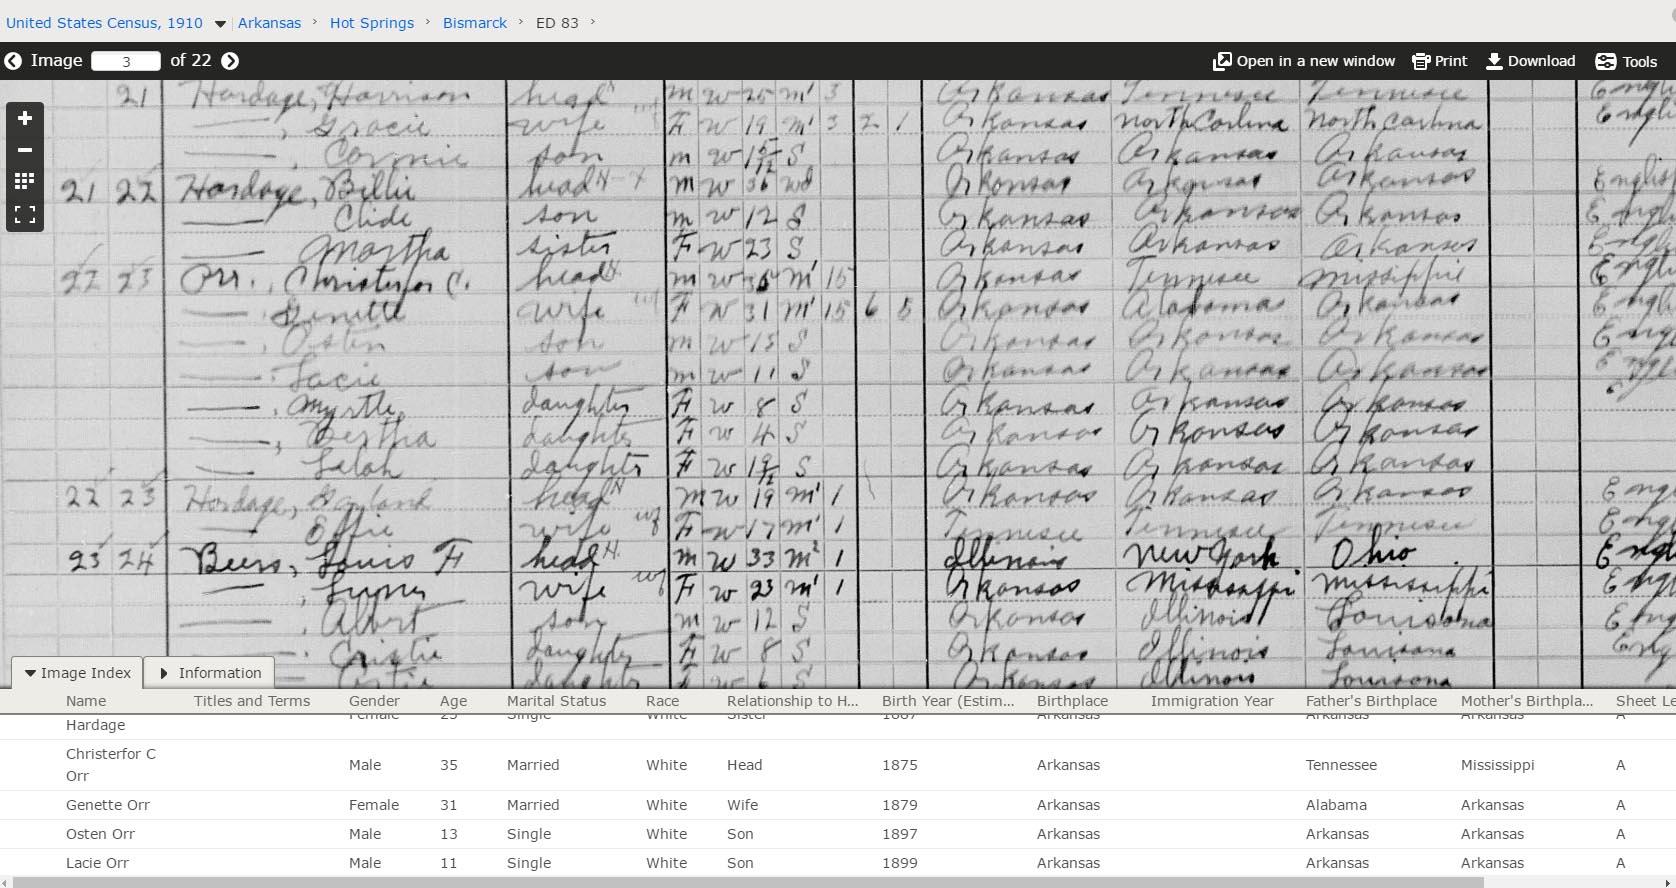 United States Census, 1910 Arkansas › Hot Springs › Bismarck › ED 83 ›
Image 3 of 22 Open in a new window Print Download Tools
21 Hardage, Harrison head m w 25 m' 3 Arkansas Tennesee Tennesee Engli
—, Gracie wife F w 19 m' 3 2 1 Arkansas North Carlina North Carlina Engli
—, son m w S Arkansas Arkansas Arkansas
21 22 Hardage, Billie head m w 36 wd Arkansas Arkansas Arkansas English
— Clide son m w 12 S Arkansas Arkansas Arkansas Engli
— Martha sister F w 23 S Arkansas Arkansas Arkansas Engli
22 23 Orr, Christerfor C. head m w m' 15 Arkansas Tennesee Missippii Engli
— Genette wife F W 31 m' 15 6 5 Arkansas Alabama Arkansas Engli
—, Osten son m w 13 S Arkansas Arkansas Arkansas Eng
—, Lacie son m w 11 S Arkansas Arkansas Arkansas Engl
—, Myrtle, daughter F w 8 S Arkansas Arkansas Arkansas
—, Bertha daughter F w 4 S Arkansas Arkansas Arkansas
— Lelah daughter F w S Arkansas Arkansas Arkansas
22 23 Hordage, Garland head m w 19 m' 1 Arkansas Arkansas Arkansas Engl
— Effie wife F w 17 m' 1 Tennesee Tennesee Tennesee Engl
23 24 Beers, Louis F head H. m w 33 m² 1 Illinois New York Ohio Engl
—, wife F w 23 m' 1 Arkansas Mississippi Mississippi Engl
—, Albert son m w 12 S Arkansas Illinois Louisana Eng
—, Cristie daughter F w 8 S Arkansas Illinois Louisana Eng
daughter F w S Arkansas Illinois Louisona
Image Index Information
Name Titles and Terms Gender Age Marital Status Race Relationship to H... Birth Year (Estim... Birthplace Immigration Year Father's Birthplace Mother's Birthpla... Sheet Le
Female 23 Single White Sister 1887 Arkansas Arkansas Arkansas A
Hardage
Christerfor C
Orr Male 35 Married White Head 1875 Arkansas Tennessee Mississippi A
Genette Orr Female 31 Married White Wife 1879 Arkansas Alabama Arkansas A
Osten Orr Male 13 Single White Son 1897 Arkansas Arkansas Arkansas A
Lacie Orr Male 11 Single White Son 1899 Arkansas Arkansas Arkansas A